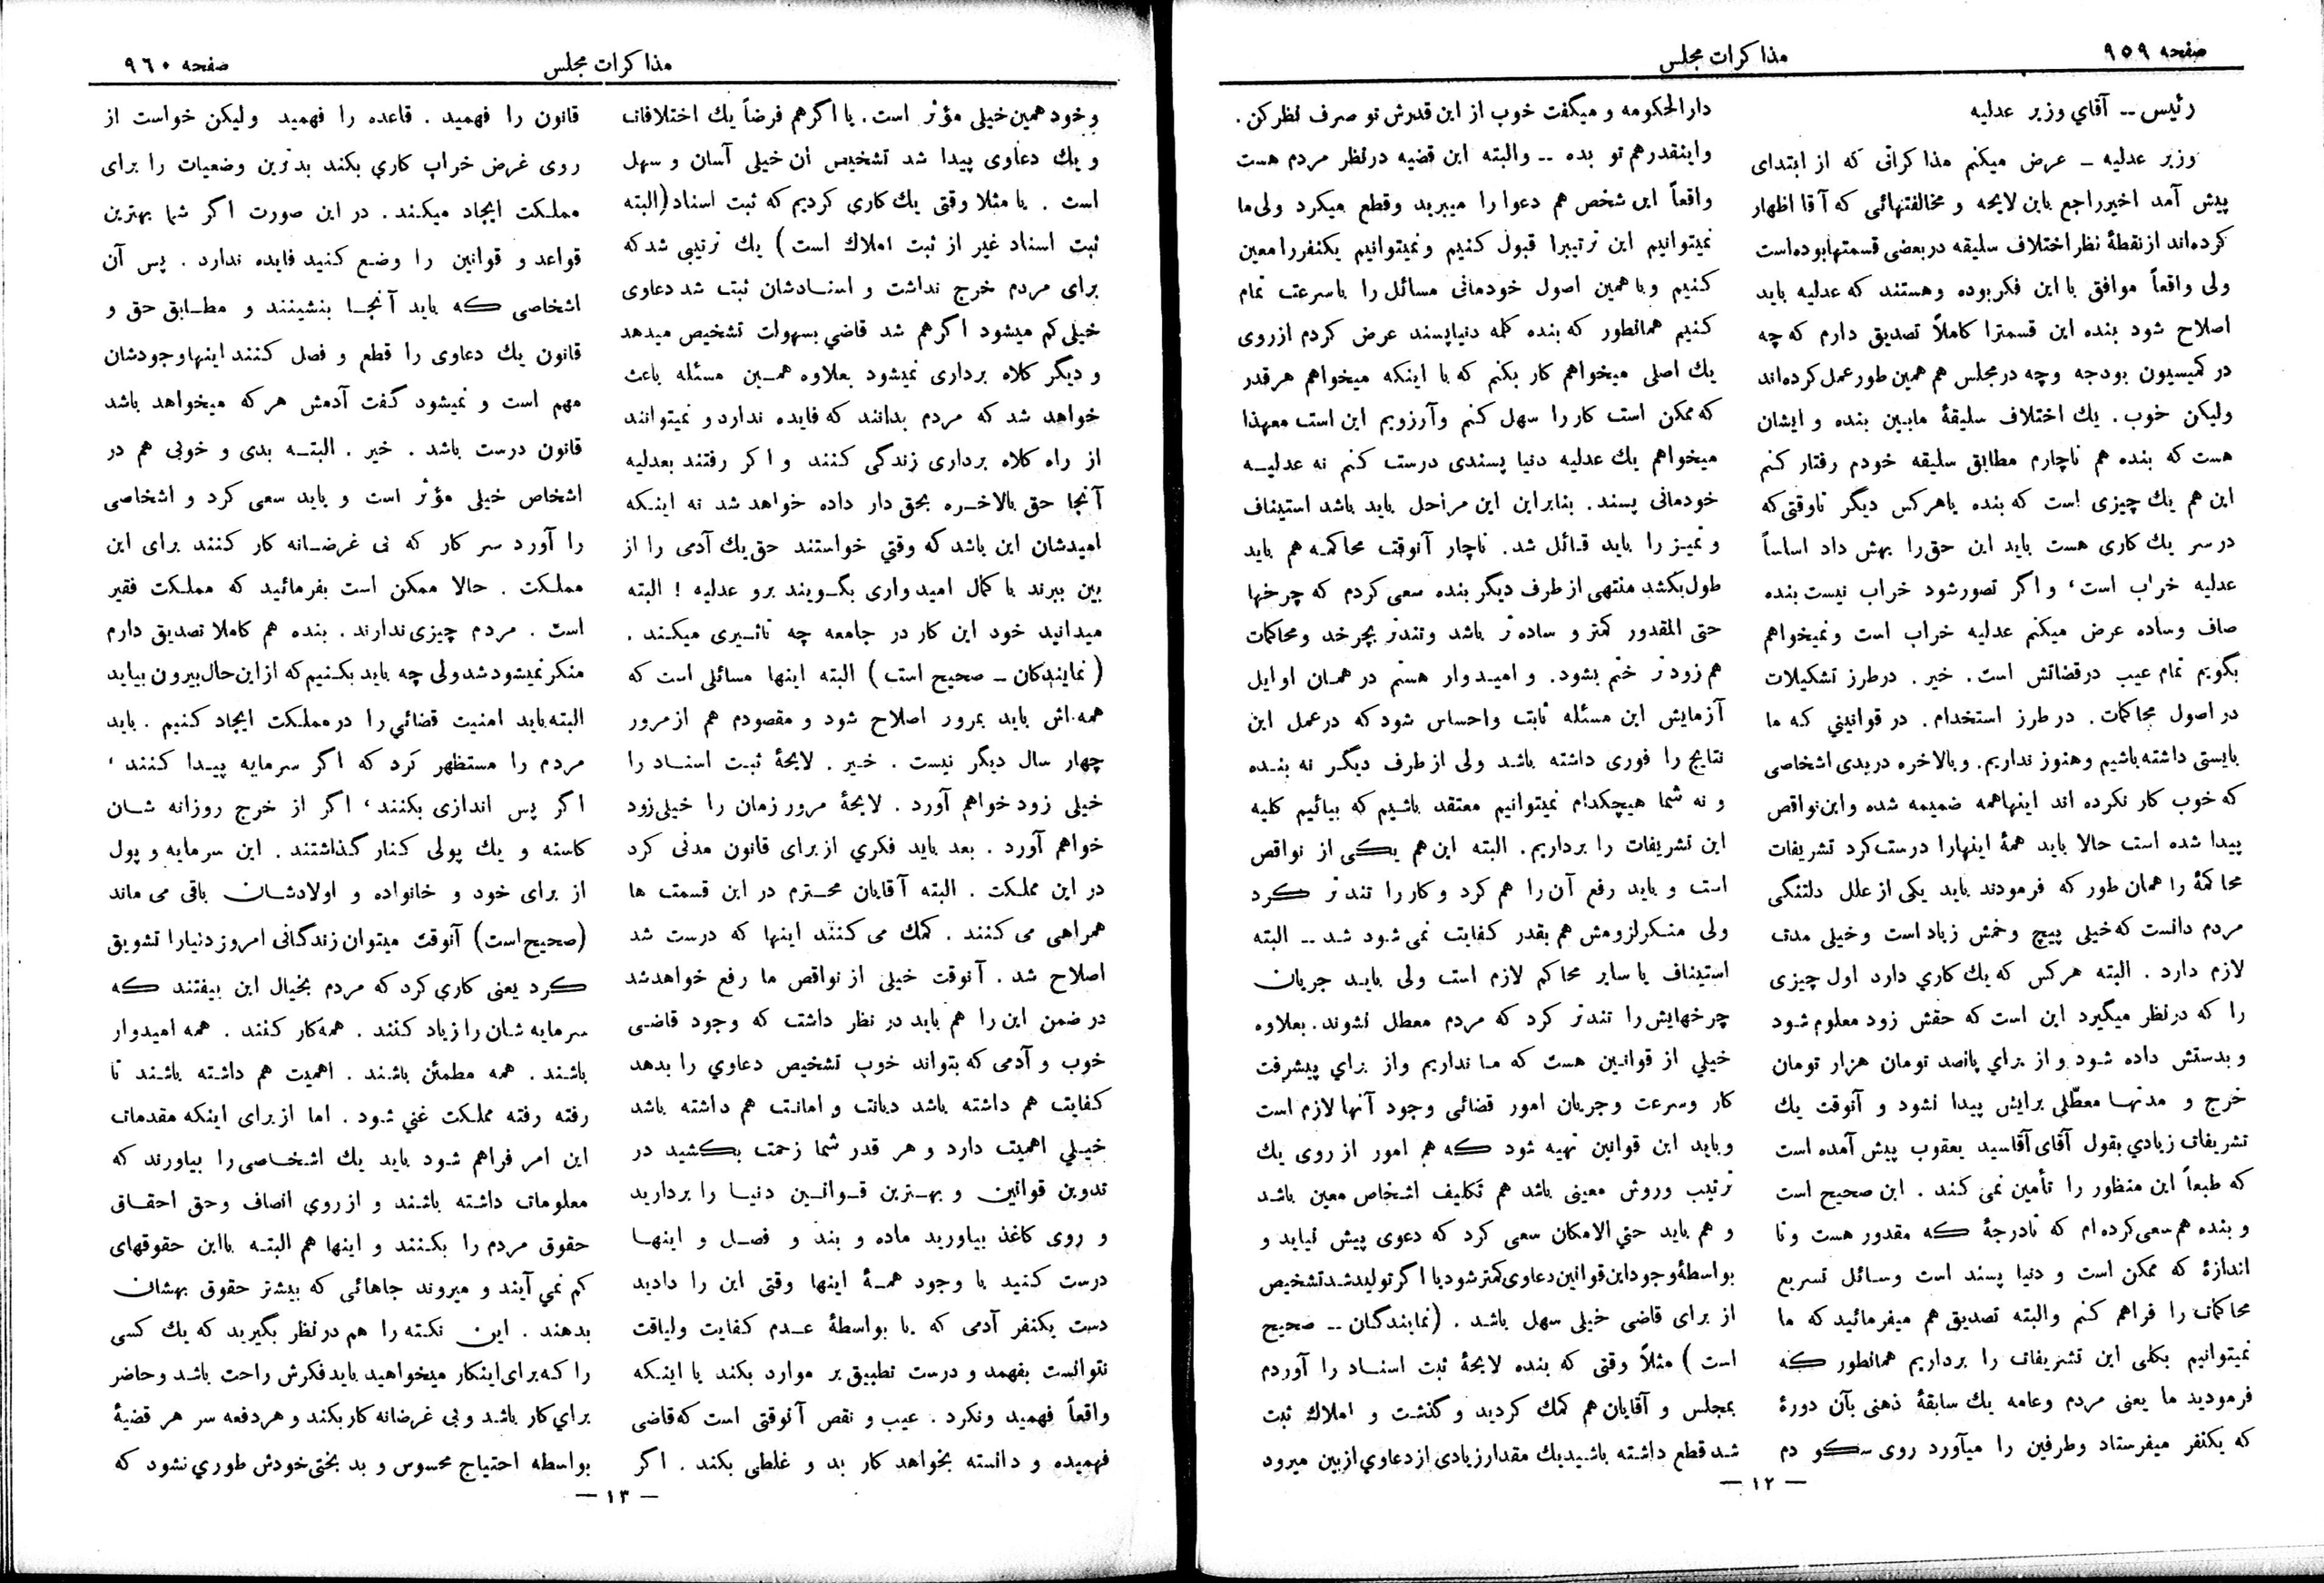 صفحه ۹۵۹
مذاکرات مجلس
رئیس -- آقاي وزیر عدلیه
وزیر عدلیه - عرض میکنم مذاکراتی که از ابتدای
پیش آمد اخیر راجع باین لایحه و مخالفتهائی که آقا اظهار
کرده‌اند از نقطهٔ نظر اختلاف سلیقه در بعضی قسمتها بوده‌است
ولی واقعاً موافق با این فکر بوده و هستند که عدلیه باید
اصلاح شود بنده این قسمترا کاملاً تصدیق دارم که چه
در کمیسیون بودجه و چه در مجلس هم همین طور عمل کرده‌اند
ولیکن خوب. یك اختلاف سلیقهٔ مابین بنده و ایشان
هست که بنده هم ناچارم مطابق سلیقه خودم رفتار کنم
این هم یك چیزی است که بنده یا هرکس دیگر تا وقتی که
در سر یك کاری هست باید این حق را بهش داد اساساً
عدلیه خراب است، و اگر تصور شود خراب نیست بنده
صاف و ساده عرض میکنم عدلیه خراب است و نمیخواهم
بگویم تمام عیب در قضاتش است. خیر. در طرز تشکیلات
در اصول محاکمات. در طرز استخدام. در قوانیني که ما
بایستی داشته باشیم و هنوز نداریم. و بالاخره در بدی اشخاصی
که خوب کار نکرده اند اینها همه ضمیمه شده و این نواقص
پیدا شده است حالا باید همهٔ اینها را درست کرد تشریفات
محاکمهٔ را همان طور که فرمودند باید یکی از علل دلتنگی
مردم دانست که خیلی پیچ و خمش زیاد است و خیلی مدت
لازم دارد. البته هرکس که یك کاري دارد اول چیزی
را که در نظر میگیرد این است که حقش زود معلوم شود
و بدستش داده شود و از براي پانصد تومان هزار تومان
خرج و مدتها معطّلي برایش پیدا نشود و آنوقت یك
تشریفات زیادي بقول آقای آقاسید یعقوب پیش آمده است
که طبعاً این منظور را تأمین نمی کند. این صحیح است
و بنده هم سعی کرده ام که تا درجهٔ که مقدور هست و تا
اندازهٔ که ممکن است و دنیا پسند است وسائل تسریع
محاکمات را فراهم کنم و البته تصدیق هم میفرمائید که ما
نمیتوانیم بکلی این تشریفات را برداریم همانطور که
فرمودید ما یعنی مردم و عامه یك سابقهٔ ذهنی بآن دورهٔ
که یکنفر میفرستاد و طرفین را میآورد روی سکو دم
دارالحکومه و میگفت خوب از این قدرش تو صرف نظر کن.
و اینقدر هم تو بده -- و البته این قضیه در نظر مردم هست
واقعاً این شخص هم دعوا را میبرید و قطع میکرد ولی ما
نمیتوانیم این ترتیبرا قبول کنیم و نمیتوانیم یکنفر را معین
کنیم و با همین اصول خودمانی مسائل را با سرعت تمام
کنیم همانطور که بنده کلمه دنیاپسند عرض کردم از روی
یك اصلی میخواهم کار بکنم که با اینکه میخواهم هر قدر
که ممکن است کار را سهل کنم و آرزویم این است معهذا
میخواهم یك عدلیه دنیا پسندی درست کنم نه عدلیه
خودمانی پسند. بنابراین این مراحل باید باشد استیناف
و تمیز را باید قائل شد. ناچار آنوقت محاکمه هم باید
طول بکشد منتهی از طرف دیگر بنده سعی کردم که چرخها
حتی المقدور کمتر و ساده تر باشد و تندتر بچرخد و محاکمات
هم زود تر ختم بشود. و امیدوار هستم در همان اوایل
آزمایش این مسئله ثابت و احساس شود که در عمل این
نتایج را فوری داشته باشد ولی از طرف دیگر نه بنده
و نه شما هیچکدام نمیتوانیم معتقد باشیم که بیائیم کلیه
این تشریفات را برداریم. البته این هم یکی از نواقص
است و باید رفع آن را هم کرد و کار را تند تر کرد
ولی منکر لزومش هم بقدر کفایت نمی شود شد -- البته
استیناف یا سایر محاکم لازم است ولی باید جریان
چرخهایش را تندتر کرد که مردم معطل نشوند. بعلاوه
خیلي از قوانین هست که ما نداریم و از براي پیشرفت
کار و سرعت و جریان امور قضائی وجود آنها لازم است
و باید این قوانین تهیه شود که هم امور از روی یك
ترتیب و روش معینی باشد هم تکلیف اشخاص معین باشد
و هم باید حتي الامکان سعی کرد که دعوی پیش نیاید و
بواسطهٔ وجود این قوانین دعاوی کمتر شود یا اگر تولید شد تشخیص
از برای قاضی خیلی سهل باشد. (نمایندگان -- صحیح
است) مثلاً وقتی که بنده لایحهٔ ثبت اسناد را آوردم
بمجلس و آقایان هم کمك کردید و گذشت و املاك ثبت
شد قطع داشته باشید یك مقدار زیادی از دعاوي از بین میرود
— ۱۲ —
صفحه ۹۶۰
مذاکرات مجلس
و خود همین خیلی مؤثر است. یا اگر هم فرضاً یك اختلافات
و یك دعاوی پیدا شد تشخیص آن خیلی آسان و سهل
است. یا مثلا وقتی یك کاري کردیم که ثبت اسناد (البته
ثبت اسناد غیر از ثبت املاك است) یك ترتیبی شد که
برای مردم خرج نداشت و اسنادشان ثبت شد دعاوی
خیلی کم میشود اگر هم شد قاضي بسهولت تشخیص میدهد
و دیگر کلاه برداری نمیشود بعلاوه همین مسئله باعث
خواهد شد که مردم بدانند که فایده ندارد و نمیتوانند
از راه کلاه برداری زندگی کنند و اگر رفتند بعدلیه
آنجا حق بالاخره بحق دار داده خواهد شد نه اینکه
امیدشان این باشد که وقتي خواستند حق یك آدمی را از
بین ببرند با کمال امیدواری بگویند برو عدلیه ! البته
میدانید خود این کار در جامعه چه تاثیری میکند.
(نمایندگان - صحیح است) البته اینها مسائلی است که
همه اش باید بمرور اصلاح شود و مقصودم هم از مرور
چهار سال دیگر نیست. خیر. لایحهٔ ثبت اسناد را
خیلی زود خواهم آورد. لایحهٔ مرور زمان را خیلی زود
خواهم آورد. بعد باید فکري از برای قانون مدنی کرد
در این مملکت. البته آقایان محترم در این قسمت ها
همراهی می کنند. کمك می کنند اینها که درست شد
اصلاح شد. آنوقت خیلی از نواقص ما رفع خواهد شد
در ضمن این را هم باید در نظر داشت که وجود قاضی
خوب و آدمی که بتواند خوب تشخیص دعاوي را بدهد
کفایت هم داشته باشد دیانت و امانت هم داشته باشد
خیلي اهمیت دارد و هر قدر شما زحمت بکشید در
تدوین قوانین و بهترین قوانین دنیا را بردارید
و روی کاغذ بیاورید ماده و بند و فصل و اینها
درست کنید با وجود همهٔ اینها وقتی این را دادید
دست یکنفر آدمی که یا بواسطهٔ عدم کفایت و لیاقت
نتوانست بفهمد و درست تطبیق بر موارد بکند یا اینکه
واقعاً فهمید و نکرد. عیب و نقص آنوقتی است که قاضی
فهمیده و دانسته بخواهد کار بد و غلطی بکند. اگر
قانون را فهمید. قاعده را فهمید ولیکن خواست از
روی غرض خراب کاري بکند بدترین وضعیات را برای
مملکت ایجاد میکند. در این صورت اگر شما بهترین
قواعد و قوانین را وضع کنید فایده ندارد. پس آن
اشخاصی که باید آنجا بنشینند و مطابق حق و
قانون یك دعاوی را قطع و فصل کنند اینها وجودشان
مهم است و نمیشود گفت آدمش هر که میخواهد باشد
قانون درست باشد. خیر. البته بدی و خوبی هم در
اشخاص خیلی مؤثر است و باید سعی کرد و اشخاصی
را آورد سر کار که بی غرضانه کار کنند برای این
مملکت. حالا ممکن است بفرمائید که مملکت فقیر
است. مردم چیزی ندارند. بنده هم کاملا تصدیق دارم
منکر نمیشود شد ولی چه باید بکنیم که از این حال بیرون بیاید
البته باید امنیت قضائي را در مملکت ایجاد کنیم. باید
مردم را مستظهر کرد که اگر سرمایه پیدا کنند،
اگر پس اندازی بکنند، اگر از خرج روزانه شان
کاسته و یك پولی کنار گذاشتند. این سرمایه و پول
از برای خود و خانواده و اولادشان باقی می ماند
(صحیح است) آنوقت میتوان زندگانی امروز دنیا را تشویق
کرد یعنی کاري کرد که مردم بخیال این بیفتند که
سرمایه شان را زیاد کنند. همه کار کنند. همه امیدوار
باشند. همه مطمئن باشند. اهمیت هم داشته باشند تا
رفته رفته مملکت غني شود. اما از برای اینکه مقدمات
این امر فراهم شود باید یك اشخاصی را بیاورند که
معلومات داشته باشند و از روي انصاف و حق احقاق
حقوق مردم را بکنند و اینها هم البته با این حقوقهای
کم نمي آیند و میروند جاهائی که بیشتر حقوق بهشان
بدهند. این نکته را هم در نظر بگیرید که یك کسی
را که برای اینکار میخواهید باید فکرش راحت باشد و حاضر
براي کار باشد و بی غرضانه کار بکند و هر دفعه سر هر قضیهٔ
بواسطه احتیاج محسوس و بد بختی خودش طوري نشود که
— ۱۳ —